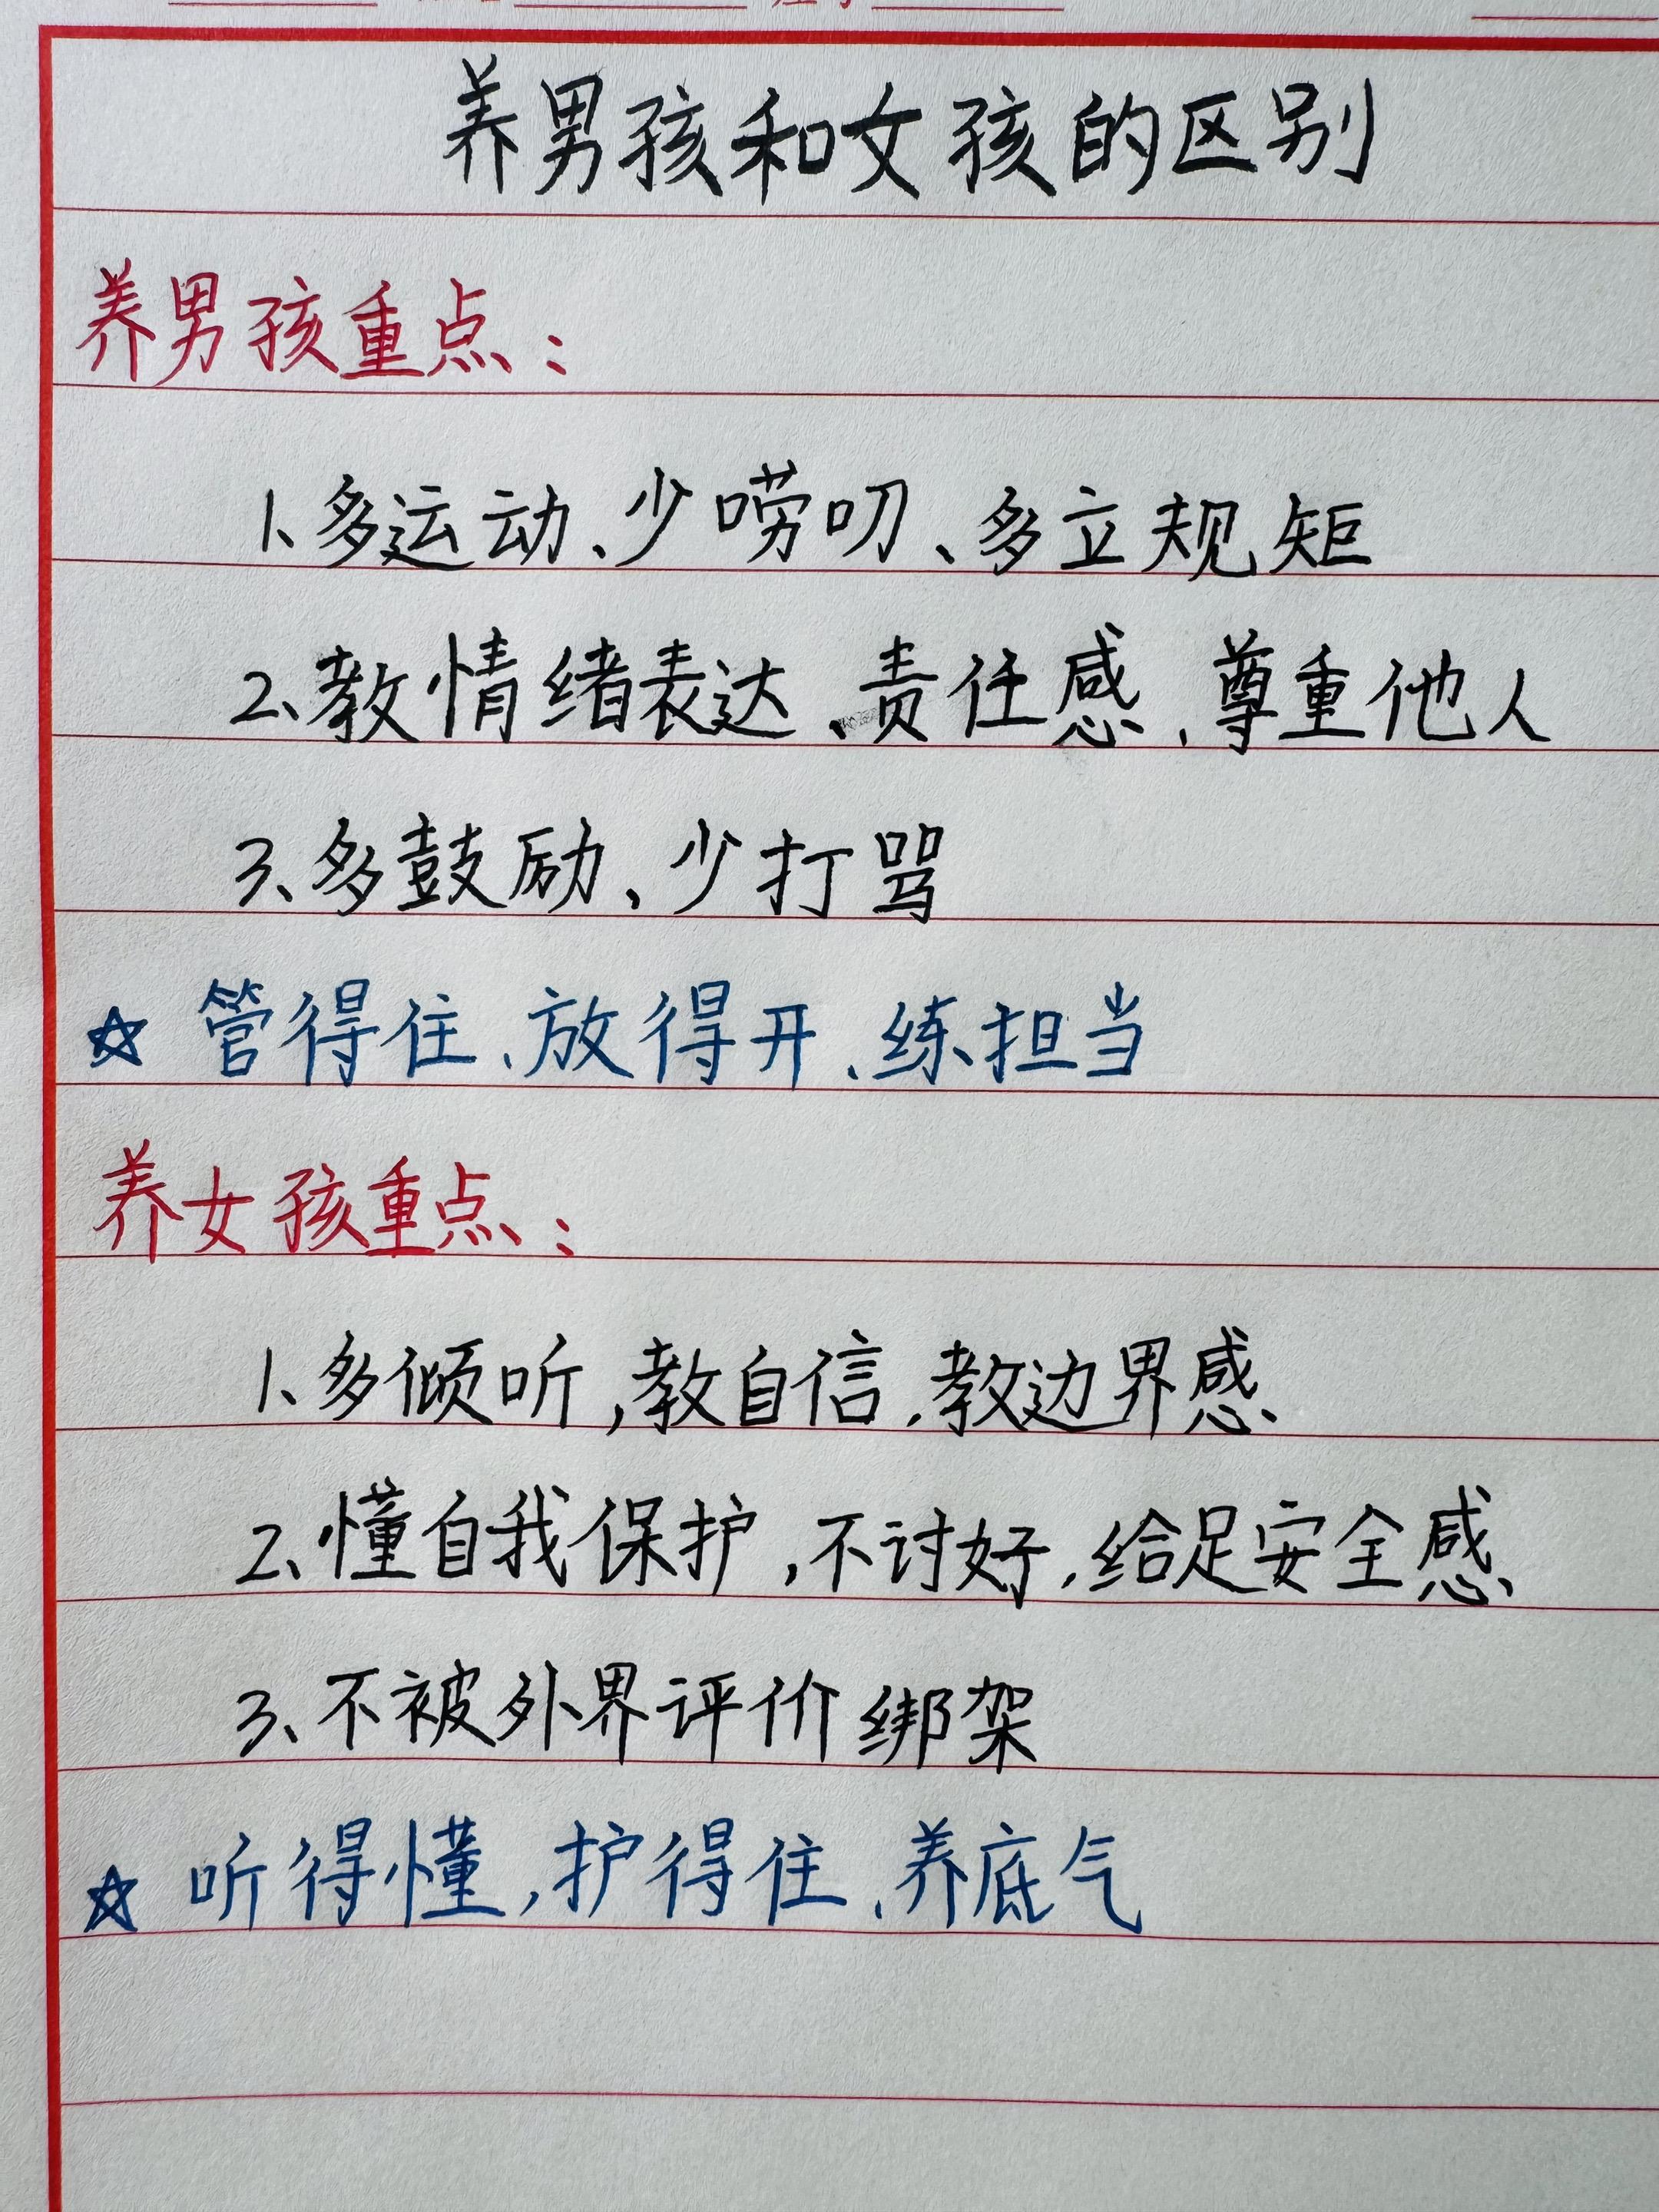 养男孩和女孩的区别
养男孩重点：
1、多运动、少唠叨、多立规矩
2、教情绪表达、责任感、尊重他人
3、多鼓励、少打骂
☆ 管得住、放得开、练担当
养女孩重点：
1、多倾听，教自信，教边界感
2、懂自我保护，不讨好，给足安全感
3、不被外界评价绑架
☆ 听得懂，护得住、养底气